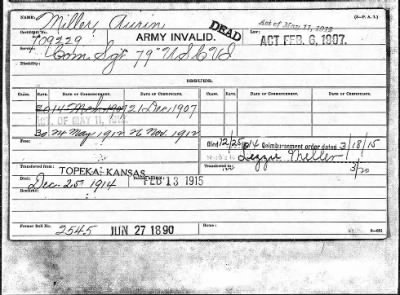 NAME: Miller, Aurin (3—P. A. I.)
Certificate No. 709229 ARMY INVALID. DEAD Law: Act of May 11, 1912
ACT FEB. 6, 1907.
Service: Com Sgt 79" USCVI
Disability:
ISSUES.
CLASS. RATE. DATE OF COMMENCEMENT. DATE OF CERTIFICATE. CLASS. RATE. DATE OF COMMENCEMENT. DATE OF CERTIFICATE.
20 14 5 Mch 1907 21 Dec 1907
ACT OF MAY 11, 1912
30 24 May 1912 26 Nov. 1912
Died 12/25/14 Reimbursement order dated 3/18/15
Lizzie Miller
3/20
Transferred from TOPEKA KANSAS Transferred to
Died: Dec. 25th 1914 FEB 13 1915
Former Roll No. 2545 JUN 27 1890